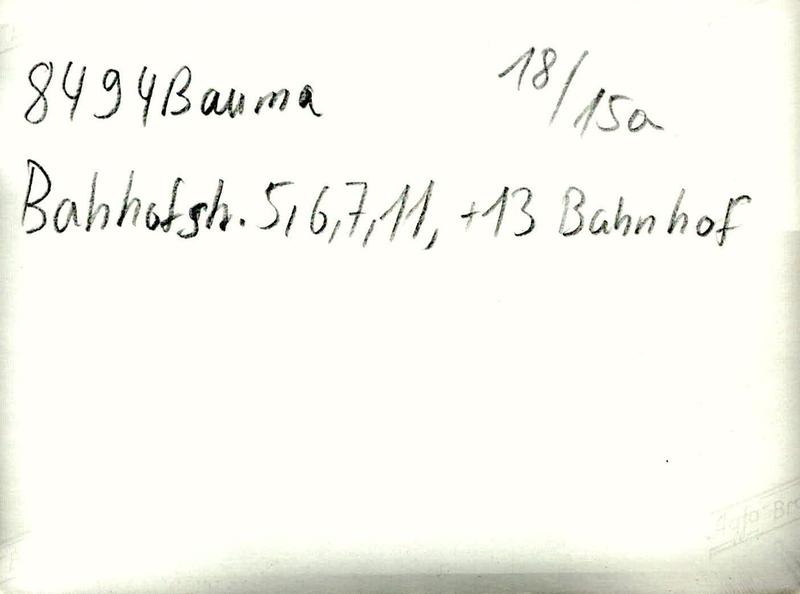 8494 Bauma 18/15a
Bahhofstr. 5, 6, 7, 11, +13 Bahnhof
Agfa-Bro